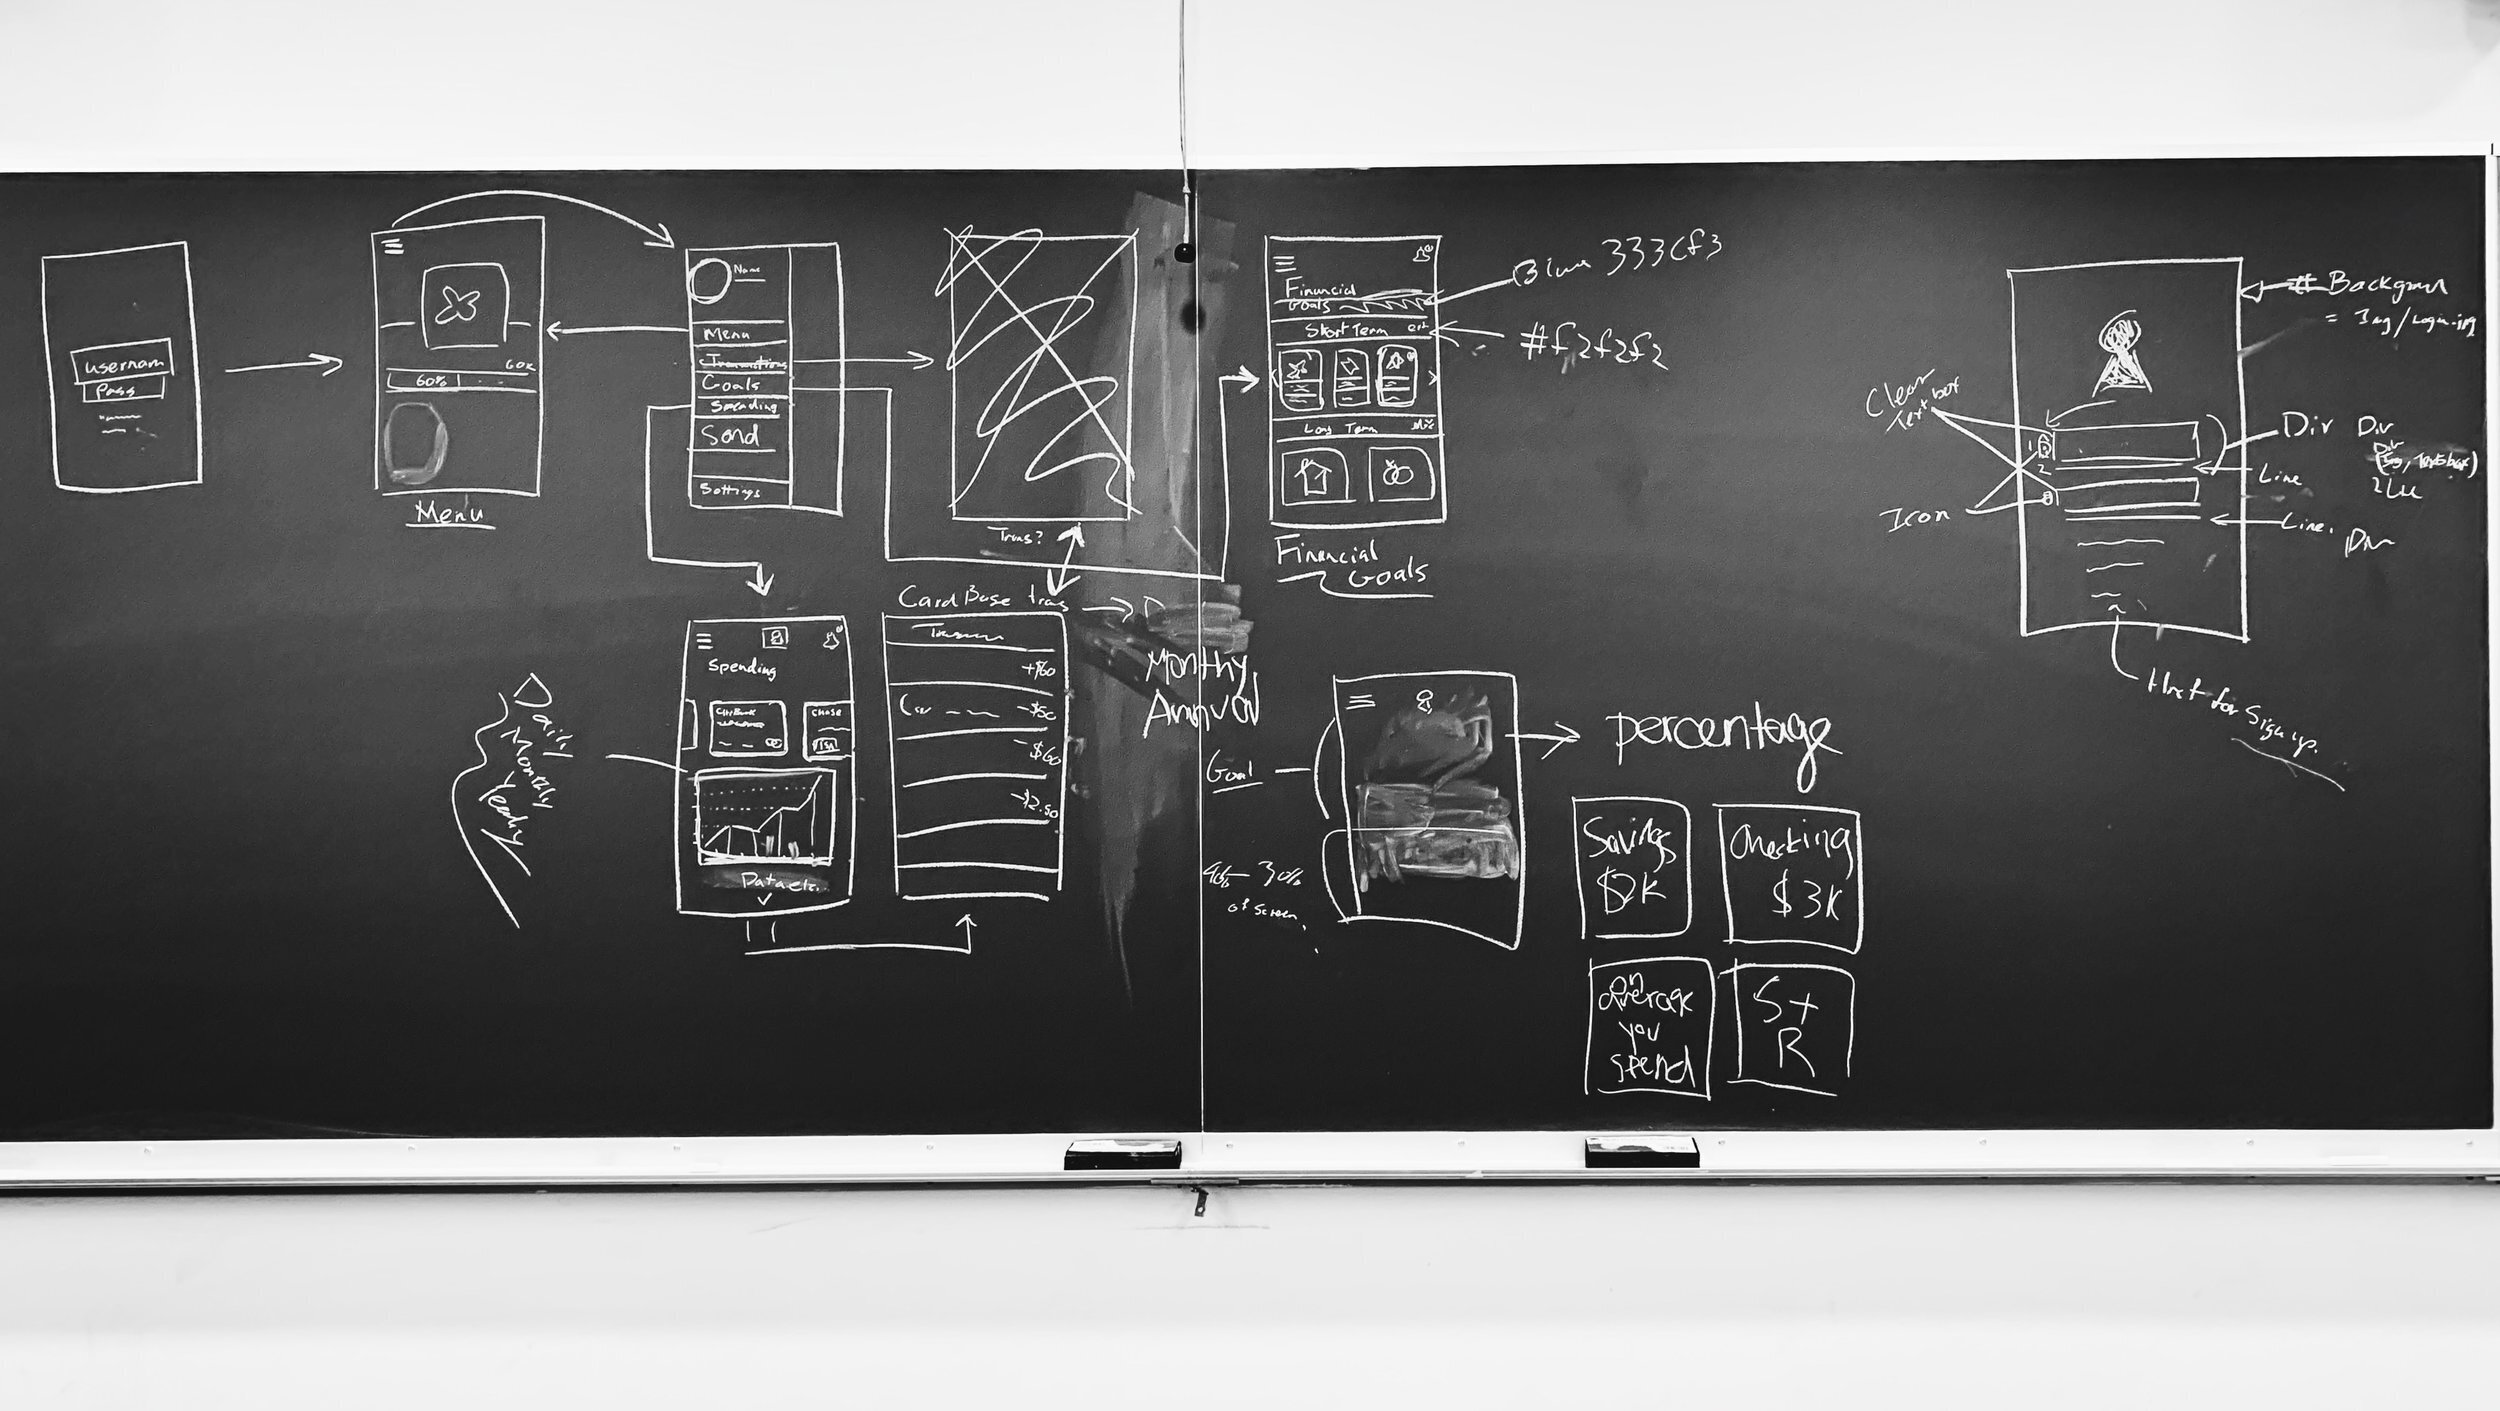 usernam
pass
60k
60%
Menu
Name
Menu
Transactions
Goals
Spending
Send
Settings
Trans?
Financial
Goals
Short Term
Long Term
Financial
Goals
333cf3
#f2f2f2
Daily
Monthly
Yearly
Spending
CitiBank
CHASE
VISA
Card Base trans
+$60
-$50
-$60
-$2.50
Monthy
Annual
Goal
30%
of screen
percentage
Savings
$2K
Checking
$3K
On
average
you
spend
S+
R
Clear
Text box
Icon
1
2
Div
Line
Line.
Div
Div
Href for Sign up.